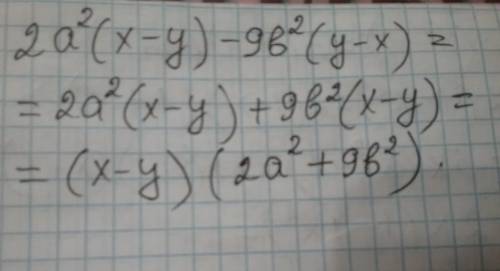 2a²(x-y)-9b²(y-x)=
=2a²(x-y)+9b²(x-y)=
=(x-y)(2a²+9b²).